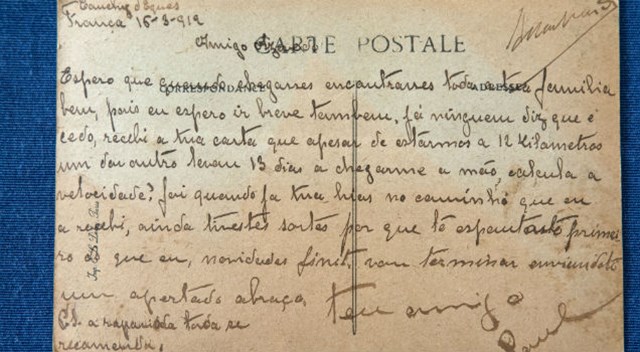 França 16-3-919
Amigo Azevedo
CARTE POSTALE
CORRESPONDANCE
ADRESSE
Espero que quando chegasses encontrasses toda a tua familia
bem, pois eu espero ir breve tambem, já ninguem diz que é
cedo, recebi a tua carta que apesar de estarmos a 12 Kilometros
um do outro levou 13 dias a chegarme a mão, calcula a
velocidade? foi quando ja tua hias no caminho que eu
a recebi, ainda tivestes sortes por que te espantaste primei
ro do que eu, novidades finit, vou terminar enviandote
um apertado abraço
teu amigo
CS. a rapaziada toda se
recomenda,